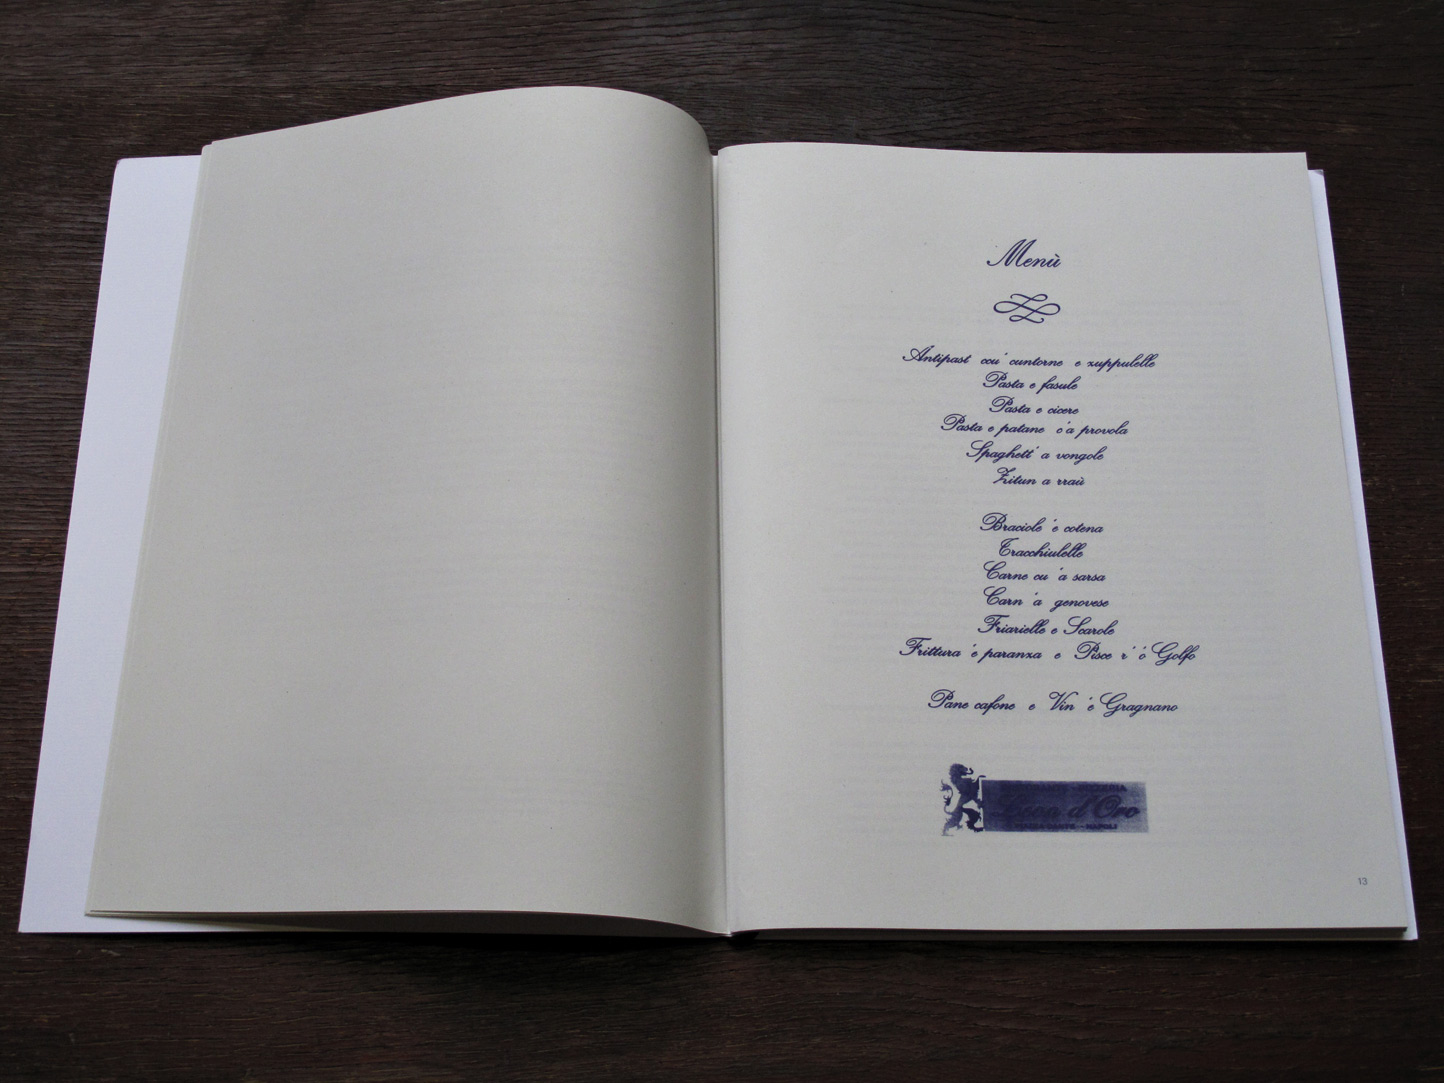 Menù
Antipast ccu' cuntorne e zuppulelle
Pasta e fasule
Pasta e cicere
Pasta e patane c'a provola
Spaghett' a vongole
Zitun a rraù
Braciole 'e cotena
Tracchiulelle
Carne cu 'a sarsa
Carn 'a genovese
Friarielle e Scarole
Frittura 'e paranza e Pisce r' 'ó Golfo
Pane cafone e Vin 'e Gragnano
d'Oro
DANTE - NAPOLI
13